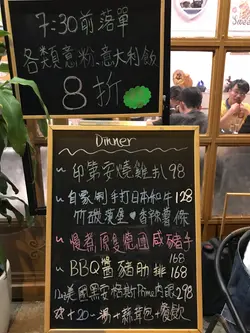 7:30前落單
各類意粉、意大利飯
8折
Dinner
~ 印第安燒雞扒 98
~ 自家制手打日本和牛 128
竹碳漢堡
薯條
~ 慢煮原隻德國咸豬手 168
~ BBQ醬豬肋排 168
美國黑安格斯Prime肉眼 298
+20 湯+蒜蓉包+餐飲